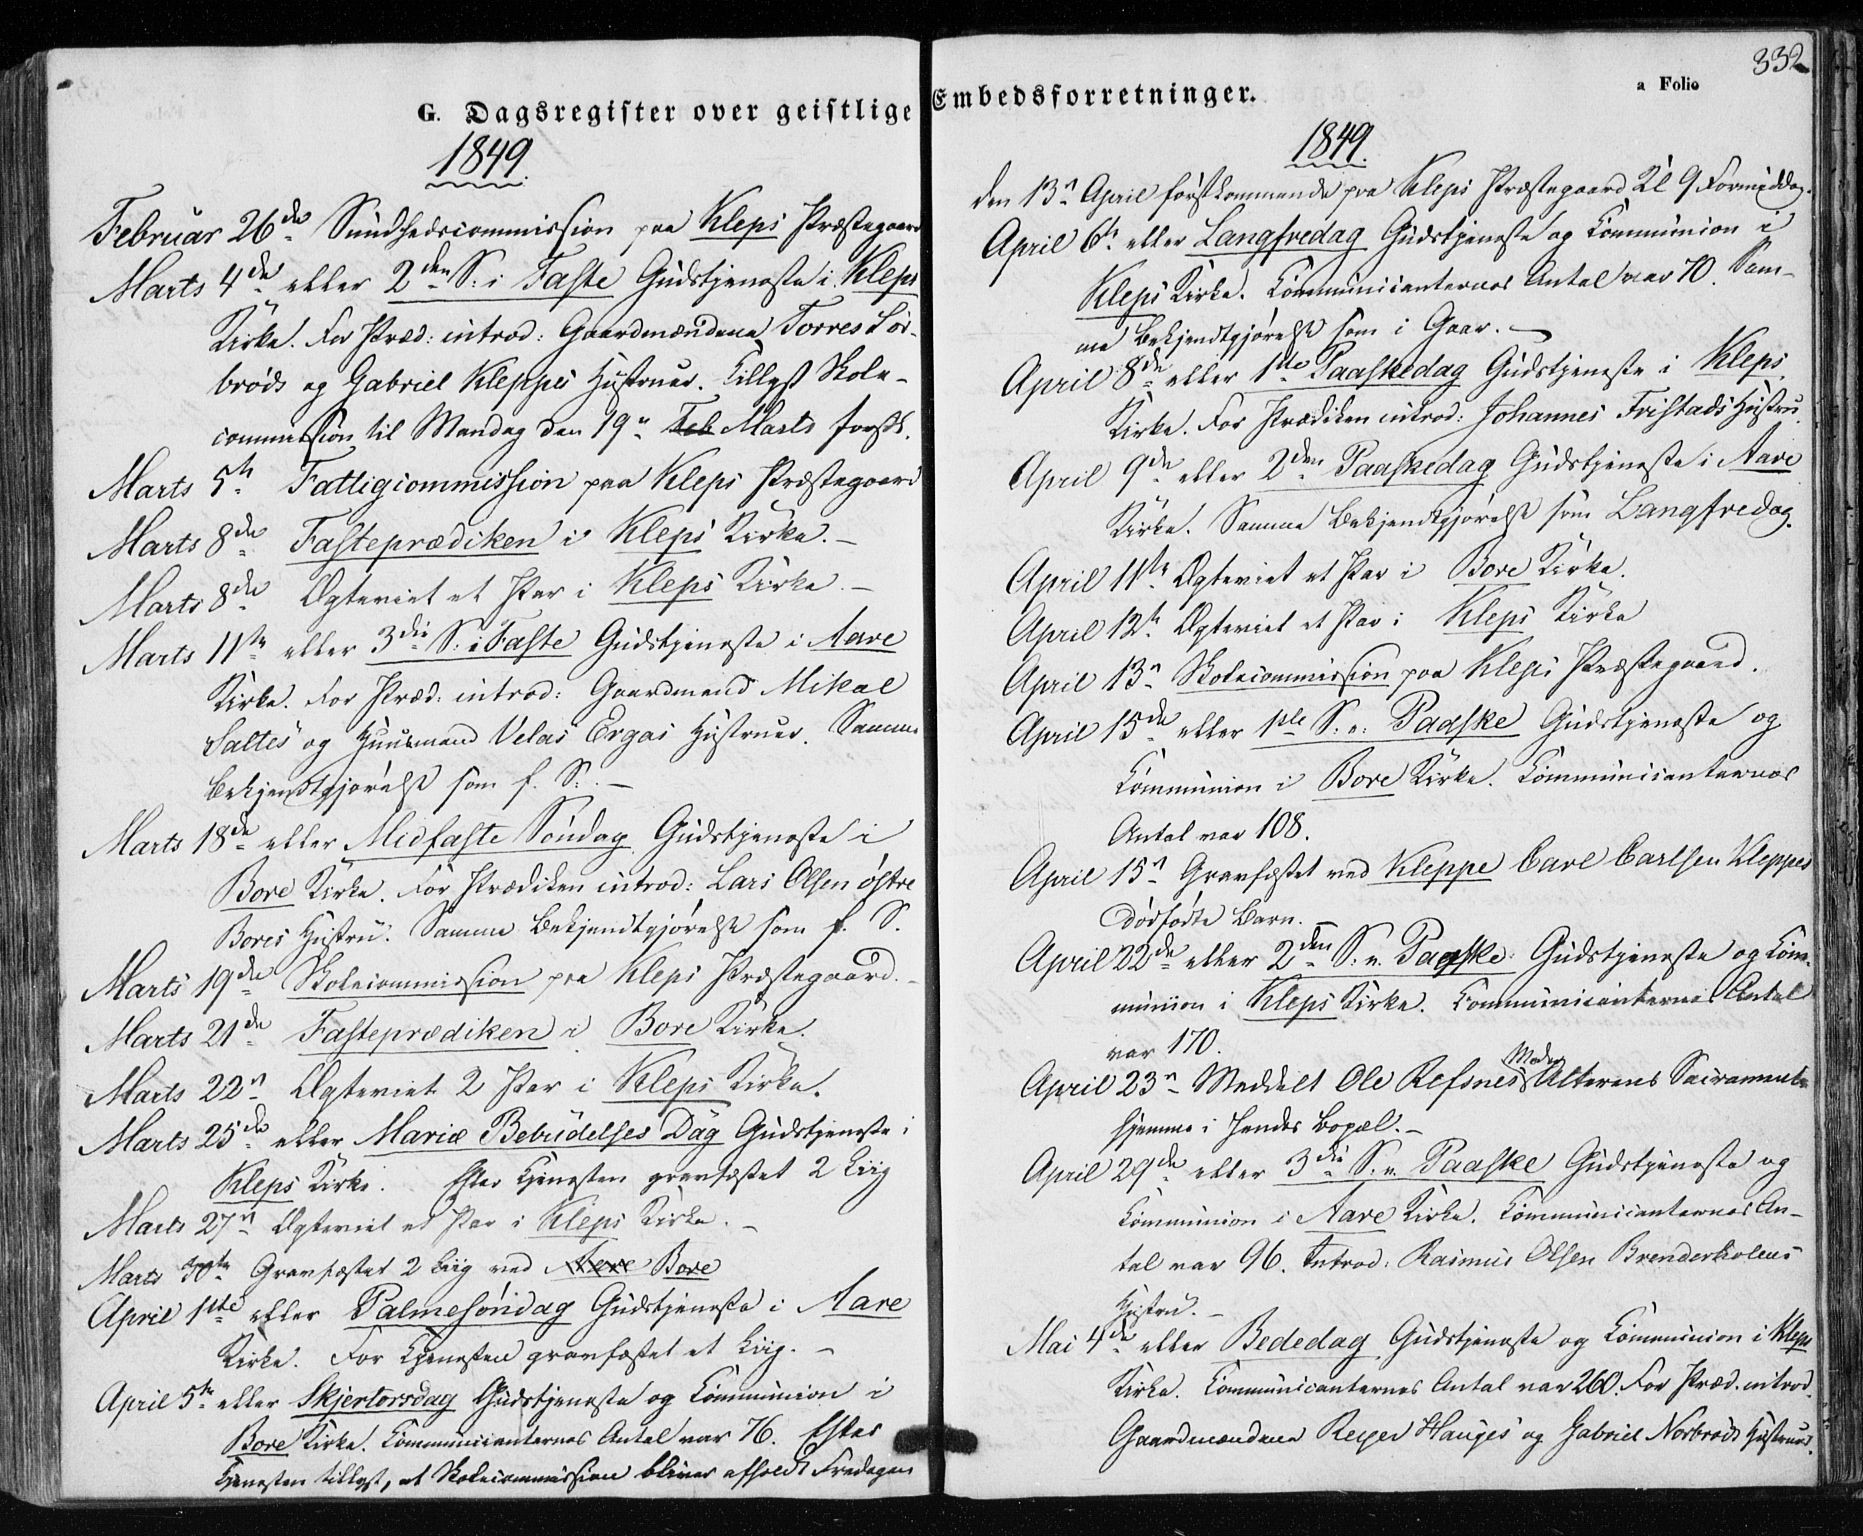 G. Dagsregister over geistlige
1849.
Februar 26de Sundhedscommission paa Kleps Præstegaard
Marts 4de eller 2den S: i Faste Gudstjeneste i Kleps
Kirke. For Præd: introd: Gaardmændene Torres Sør-
brøds og Gabriel Kleppes Hustruer. Tillyst Skole-
commission til Mandag den 19n Feb Marts førstk.
Marts 5te Fattigcommission paa Kleps Præstegaard
Marts 8de Fasteprædiken i Kleps Kirke. –
Marts 8de Ægteviet et Par i Kleps Kirke. –
Marts 11te eller 3die S: i Faste Gudstjeneste i Aare
Kirke. For Præd: introd: Gaardmand Mikal
Saltes og Huusmand Velas Ergas Hustruer. Samme
Bekjendtgjørelse som f. S. –
Marts 18de eller Midfaste Søndag Gudstjeneste i
Bore Kirke. For Prædiken introd: Lars Olsen østre
Bores Hustru. Samme Bekjendtgjørelse som f. S.
Marts 19de Skolecommission paa Kleps Præstegaard. –
Marts 21de Fasteprædiken i Bore Kirke.
Marts 22n Ægteviet 2 Par i Kleps Kirke.
Marts 25de eller Mariæ Bebudelses Dag Gudstjeneste i
Kleps Kirke. Efter Tjenesten gravfæstet 2 Liig
Marts 27n Ægteviet et Par i Kleps Kirke. –
Marts 30te Gravfæstet 2 Liig ved Aare Bore
April 1ste eller Palmesøndag Gudstjeneste i Aare
Kirke. For Tjenesten gravfæstet et Liig. –
April 5te eller Skjertorsdag Gudstjeneste og Communion i
Bore Kirke. Communicanternes Antal var 76. Efter
Tjenesten tillyst, at Skolecommission bliver afholdt Fredagen
Embedsforretninger.
a Folio
332
1849.
den 13n April førstkommende paa Kleps Præstegaard Kl 9 Formiddag.
April 6te eller Langfredag Gudstjeneste og Communion i
Kleps Kirke. Communicanternes Antal var 70. Sam-
me Bekjendtgjørelse som i Gaar. –
April 8de eller 1ste Paaskedag Gudstjeneste i Kleps
Kirke. For Prædiken introd: Johannes Fristads Hustru.
April 9de eller 2den Paaskedag Gudstjeneste i Aare
Kirke. Samme Bekjendtgjørelse som Langfredag.
April 11te Ægteviet et Par i Bore Kirke.
April 12te Ægteviet et Par i Kleps Kirke
April 13n Skolecommission paa Kleps Præstegaard.
April 15de eller 1ste S: e: Paaske Gudstjeneste og
Communion i Bore Kirke. Communicanternes
Antal var 108.
April 15n Gravfæstet ved Kleppe Carl Carlsen Kleppes
dødfødte Barn. –
April 22de eller 2den S: e. Paaske: Gudstjeneste og Com-
munion i Kleps Kirke. Communicanternes Antal
var 170.
April 23n Meddelt Ole Refsnes Moder Alterens Sacramente
hjemme i hendes Bopæl. –
April 29de eller 3die S: e. Paaske Gudstjeneste og
Communion i Aare Kirke. Communicanternes An-
tal var 96. Introd: Rasmus Olsen Brenderkolens
Hustru. –
Mai 4de eller Bededag Gudstjeneste og Communion i Kleps
Kirke. Communicanternes Antal var 260. For Præd. introd.
Gaardmændene Reyer Hauges og Gabriel Norbrøds Hustruer.